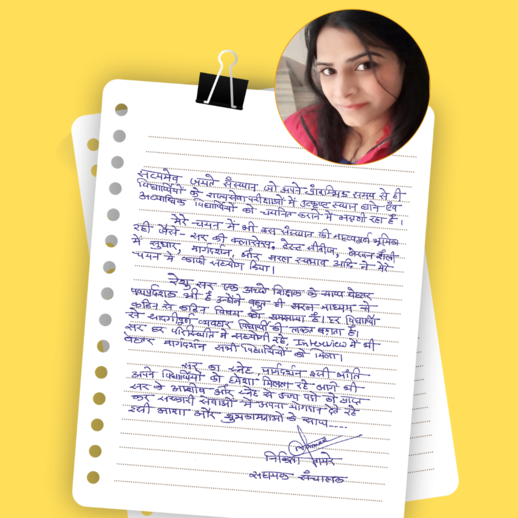 सत्यमेव जयते संस्थान जो अपने प्रारम्भिक समय से ही
विद्यार्थियों के राज्यसेवा परीक्षाओं में उत्कृष्ट स्थान लाने एवं
अत्यधिक विद्यार्थियों को चयनित कराने में अग्रणी रहा है।
मेरे चयन में भी इस संस्थान की महत्वपूर्ण भूमिका
रही जैसे - सर की क्लासेस, टेस्ट सीरीज, लेखन शैली
में सुधार, मार्गदर्शन, और सरल स्वभाव आदि ने मेरे
चयन में काफी सहयोग किया।
सर एक अच्छे शिक्षक के साथ बेहतर
पथप्रदर्शक भी है उन्होंने बहुत ही सरल माध्यम से
कठिन से कठिन विषय को समझाया है। हर विद्यार्थी
से व्यवहार विद्यार्थी को बनाता है।
सर हर परिस्थिति में सहयोगी रहे, Interview में भी
बेहतर मार्गदर्शन सभी विद्यार्थियों को मिला।
सर का स्नेह, मार्गदर्शन इसी भांति
आने विद्यार्थियों को हमेशा मिलता रहे आगे भी
सर के आशीष और स्नेह से उच्च पदों को प्राप्त
कर सरकारी सेवाओं में अपना योगदान देते रहे
इसी आशा और शुभकामनाओं के साथ.....
निकिता
सहायक संचालक